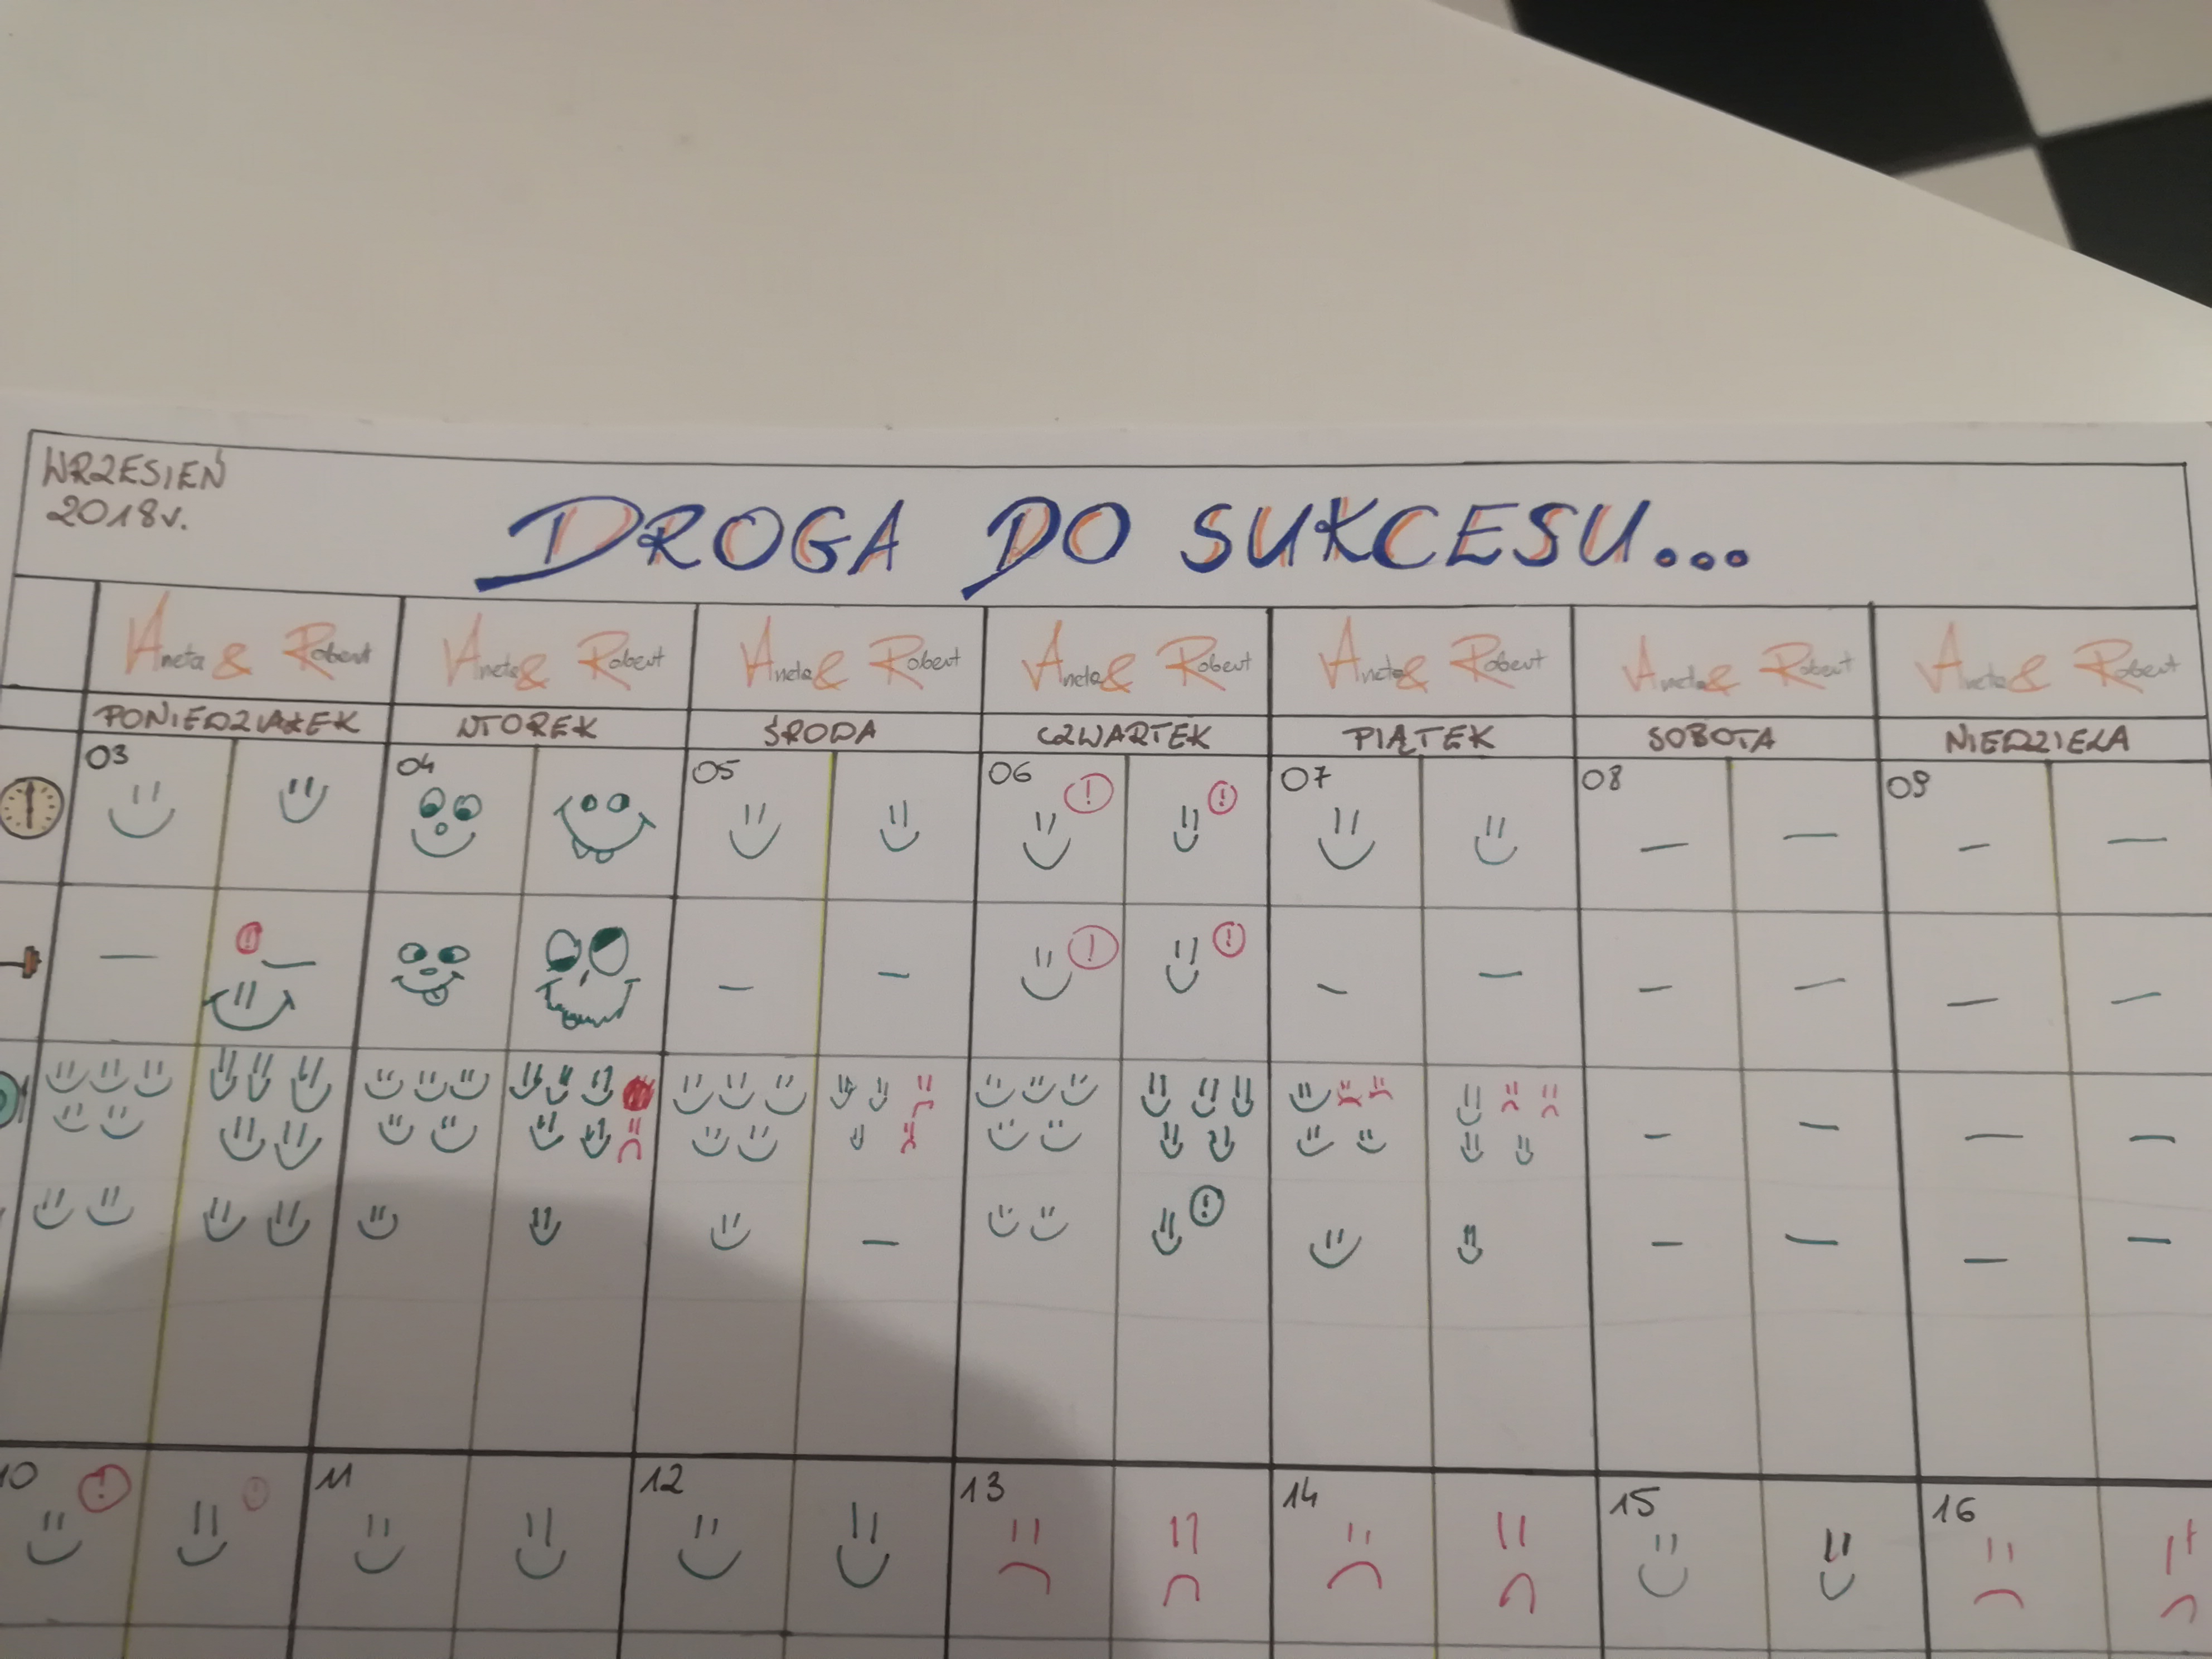 WRZESIEŃ
2018r.
DROGA DO SUKCESU...
Aneta & Robert Aneta & Robert Aneta & Robert Aneta & Robert Aneta & Robert Aneta & Robert Aneta & Robert
PONIEDZIAŁEK WTOREK ŚRODA CZWARTEK PIĄTEK SOBOTA NIEDZIELA
03 04 05 06 ! ! 07 08 09
! ! !
!
10 ! ! 11 12 13 14 15 16